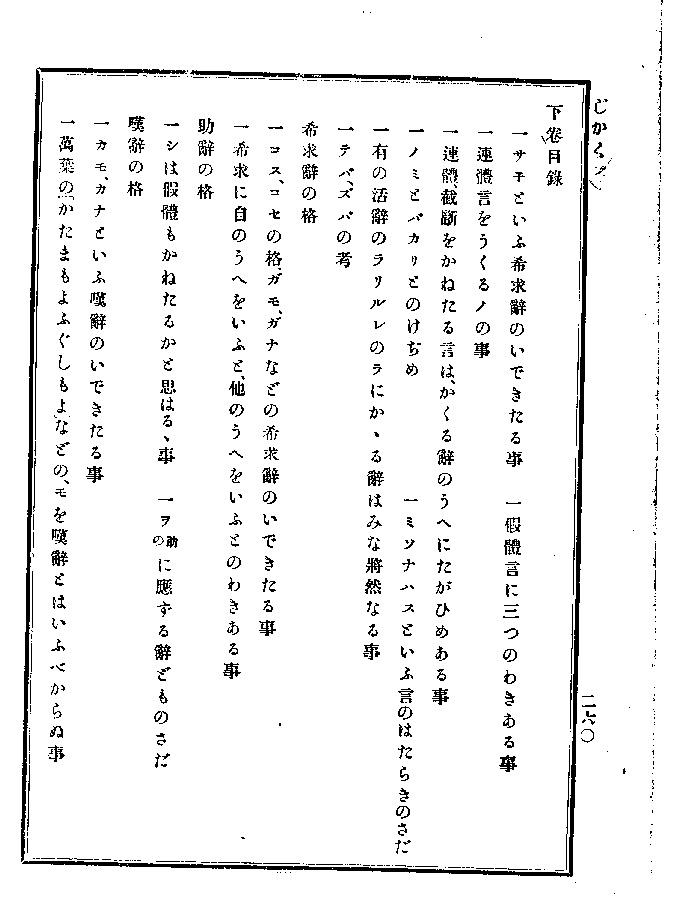 じかく
下卷目錄
一サモといふ希求辭のいできたる事　一假體言に三つのわきある事
一連體言をうくるノの事
一連體、截斷をかねたる言は、かくる辭のうへにたがひめある事
一ノミとバカリとのけぢめ　一ミソナハスといふ言のはたらきのさだ
一有の活辭のラリルレのラにかゝる辭はみな將然なる事
一テバ、ズバの考
希求辭の格
一コス、コセの格、ガモ、ガナなどの希求辭のいできたる事
一希求に自のうへをいふと、他のうへをいふとのわきある事
助辭の格
一シは假體もかねたるかと思はるゝ事　一ヲの助に應ずる辭どものさだ
嘆辭の格
一カモ、カナといふ嘆辭のいできたる事
一萬葉の「かたまもよふぐしもよ」などの、モを嘆辭とはいふべからぬ事
二六〇